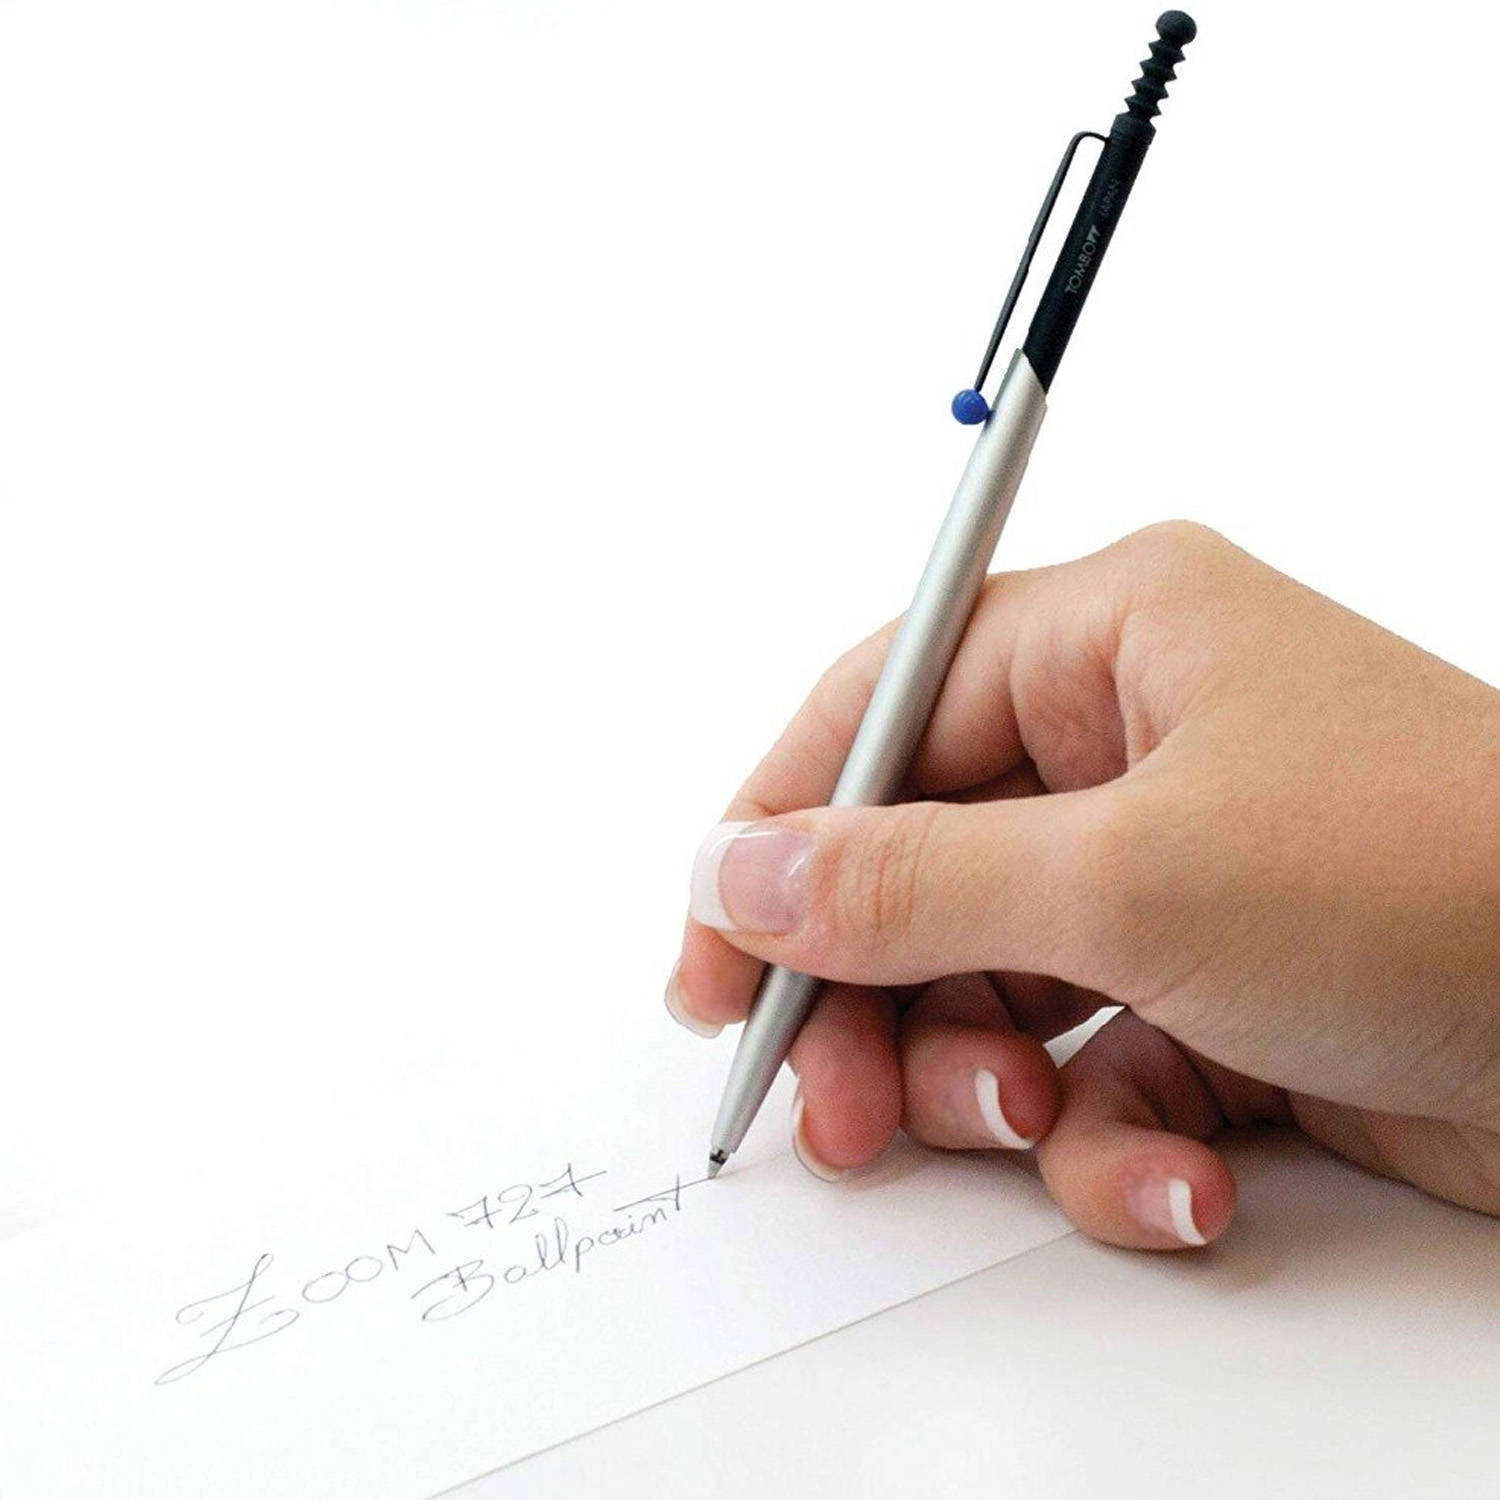 TOMBOW JAPAN
ZOOM 727
Ballpoint